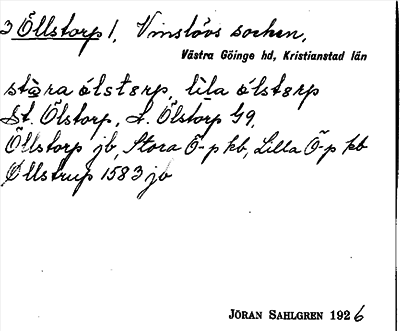 3 Öllstorp 1, Vinslövs socken,
Västra Göinge hd, Kristianstad län
stòra ólstɛrp, lìla ólstɛrp
St. Ölstorp, L. Ölstorp G9,
Öllstorp jb, Stora Ö-p kb, Lilla Ö-p kb
Øllstrup 1583 jb
JÖRAN SAHLGREN 1926